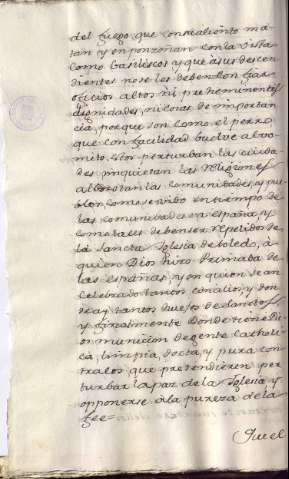 del fuego, que con su aliento ma-
tan, y enponzoñan con la vista
como basiliscos, y que a sus descen
dientes no se les deben confiar
oficios altos ni preheminentes
dignidades, ni cosas de importan
cia, porque son como el perro
que con facilidad buelve al vo-
mito. Estos perturban las ciuda
des inquietan las religiones
alborotan las comunidades, y pue
blos, como se vido en tiempo de
las comunidades en españa, y
como tales deben ser repelidos de
la Sancta Iglesia de toledo, à
quien Dios hizo Primada de
las españas, y en quien se an
celebrado tantos concilios, y don
de ay tantos cuerpos de Sanctos
y finalmente donde tiene Di-
os municion de gente catholi-
ca, limpia, docta, y pura con-
tra los que pretendieren per
turbar la paz de la Iglesia y
opponerse à la pureza de la
fee
Que el